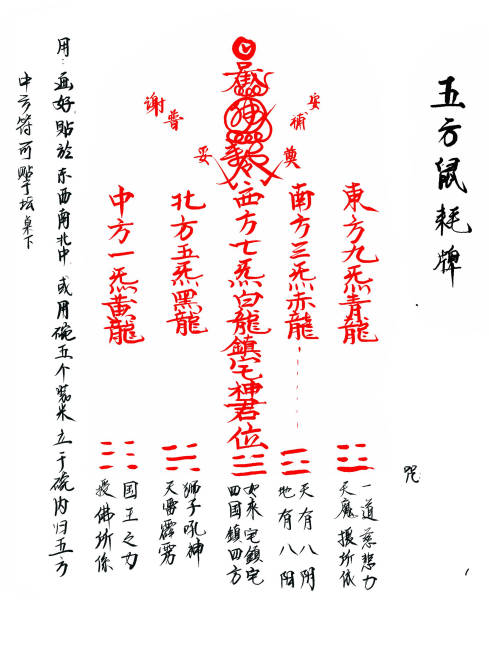 五方鼠耗牌
咒
東方九炁青龍
南方三炁赤龍
西方七炁白龍鎮宅神君位
北方五炁黑龍
中方一炁黃龍
安
補
奠
謝
普
妥
一道慈悲力
天魔攘所依
天有八阴
地有八阳
安来宅鎮宅
四国鎮四方
狮子吼神
天雷霹雳
国王之力
授佛所係
用：画好貼於东西南北中或用碗五个装米立于碗内归五方
中方符可贴于坛桌下